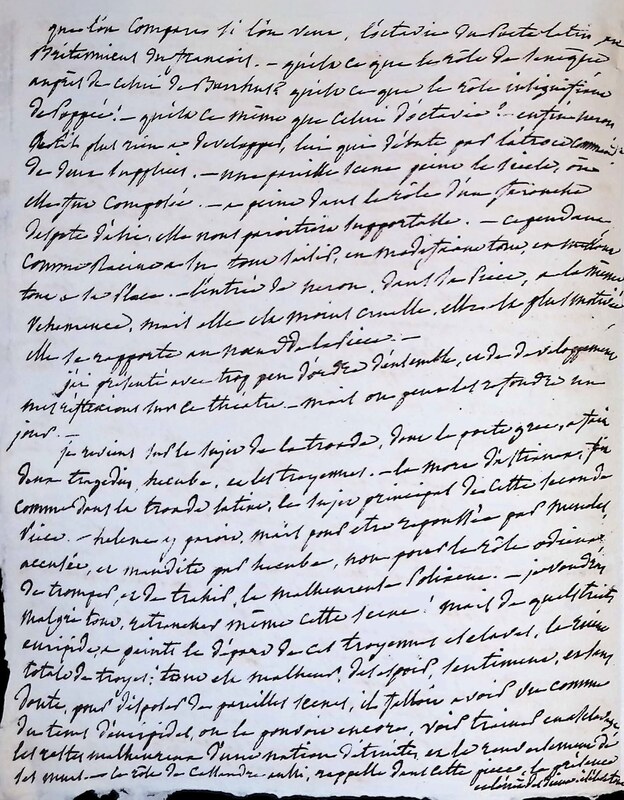 que l'on compare si l'on veut, l'octavie du poete latin au
Britannicus du françois. — qu'est ce que le rôle de seneque
auprès de celui de Burrhus? qu'est ce que le rôle insignifiant
de Poppée! — qu'est ce même que celui d'octavie? enfin neron
n'a plus rien a developper, lui qui débute par l'atroce
de deux supplices. — une pareille scene peint le siecle, où
elle fut composée. — a peine dans le rôle d'un farouche
despote d'asie, elle nous paroitroit supportable. — cependant
comme Racine a su tout saisir, en modifiant tout, en mettant
tout a sa place. — l'entrée de neron, dans sa piece, a la même
vehemence, mais elle est moins cruelle, elle est plus motivée
elle se rapporte au nœud de la piece. —
j'ai présenté avec trop peu d'ordre d'ensemble, et de developpement
mes réflexions sur ce theatre. — mais on peut les refondre un
jour. —
je reviens sur le sujet de la troade, dont le poete grec, a fait
deux tragedies, hecube, et les troyennes. — la mort d'astianax, fait
comme dans la troade latine, le sujet principal de cette seconde
piece. — helene y paroit, mais pour etre repoussée par menelas
accusée, et maudite par hecube, non pour le rôle odieux
de tromper, et de trahir, la malheureuse Polixene. — je voudrois
malgré tout, retrancher même cette scene! mais de quels traits
euripide, a peint le départ de ces troyennes esclaves, la ruine
totale de troyes! tout est malheur, desespoir, sentiment, et sans
doute, pour disposer de pareilles scenes, il falloit avoir vu comme
du tems d'euripide, on le pouvoit encore, voir trainer en esclavage
les restes malheureux d'une nation détruite, et le renversement de
ses murs. — le rôle de Cassandre enfin, rappelle dans cette piece, la présence